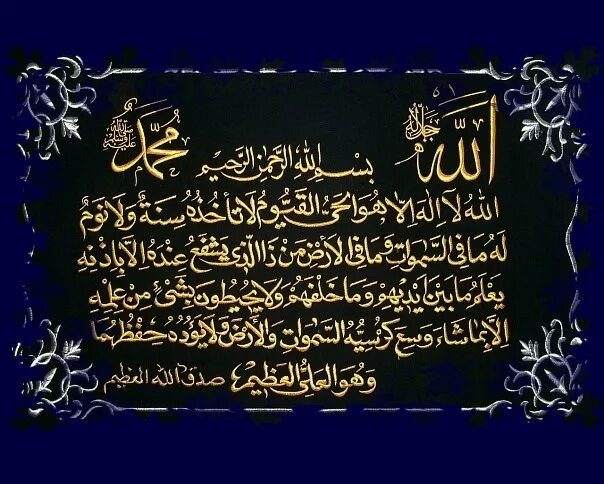 الله جل جلاله
محمد صلى الله عليه وسلم
بسم الله الرحمن الرحيم
الله لا اله الا هو الحي القيوم لا تأخذه سنة ولا نوم
له ما في السموات وما في الارض من ذا الذي يشفع عنده الا باذنه
يعلم ما بين ايديهم وما خلفهم ولا يحيطون بشيء من علمه
الا بما شاء وسع كرسيه السموات والارض ولا يؤده حفظهما
وهو العلي العظيم صدق الله العظيم